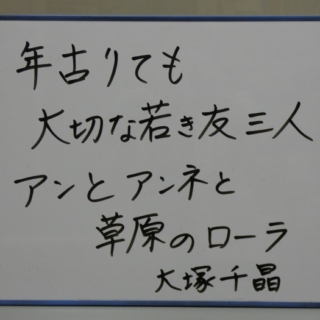 年古りても
大切な若き友三人
アンとアンネと
草原のローラ
大塚千晶